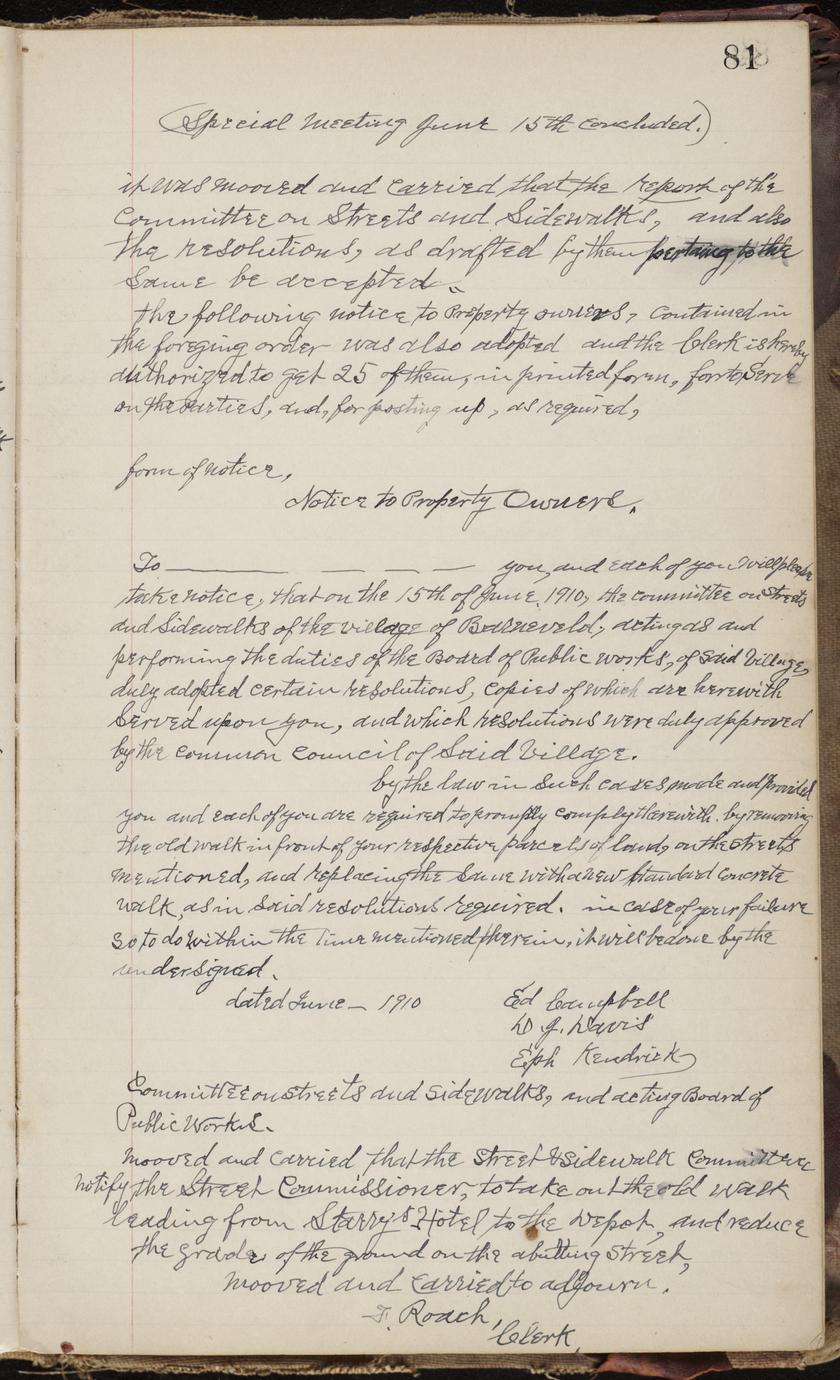 81
(Special Meeting June 15th concluded.)
it was mooved and carried that the report of the
Committee on Streets and Sidewalks, and also
the resolutions, as drafted by them pertaing to the
Same be accepted.
the following notice to Property owners, contained in
the foreging order was also adopted and the Clerk is hereby
authorized to get 25 of them, in printed form, for to Serve
on the Parties, and, for posting up, as required,
form of notice,
Notice to Property Owners.
To ——— — — — you, and each of you will please
take notice, that on the 15th of June, 1910, the committee on Streets
and Sidewalks of the village of Barneveld, acting as and
performing the duties of the Board of Public works, of Said Village,
duly adopted certain resolutions, copies of which are herewith
Served upon you, and which resolutions were duly approved
by the Common Council of Said Village.
by the law in such cases made and provided
you and each of you are required to promptly comply therewith, by removing
the old walk in front of your respective parcels of land, on the streets
mentioned, and replacing the same with a new standard concrete
walk, as in said resolutions required. in case of your failure
so to do within the Time mentioned therein, it will be done by the
undersigned.
dated June — 1910
Ed Campbell
D. J. Davis
Eph Kendrick
Committee on streets and sidewalks, and acting Board of
Public Works.
mooved and carried that the Street & Sidewalk Committee
notify the Street Commissioner, to take out the old walk
leading from Starry's Hotel to the Depot, and reduce
the grade of the ground on the abutting Street,
mooved and carried to adjourn.
F. Roach,
Clerk,